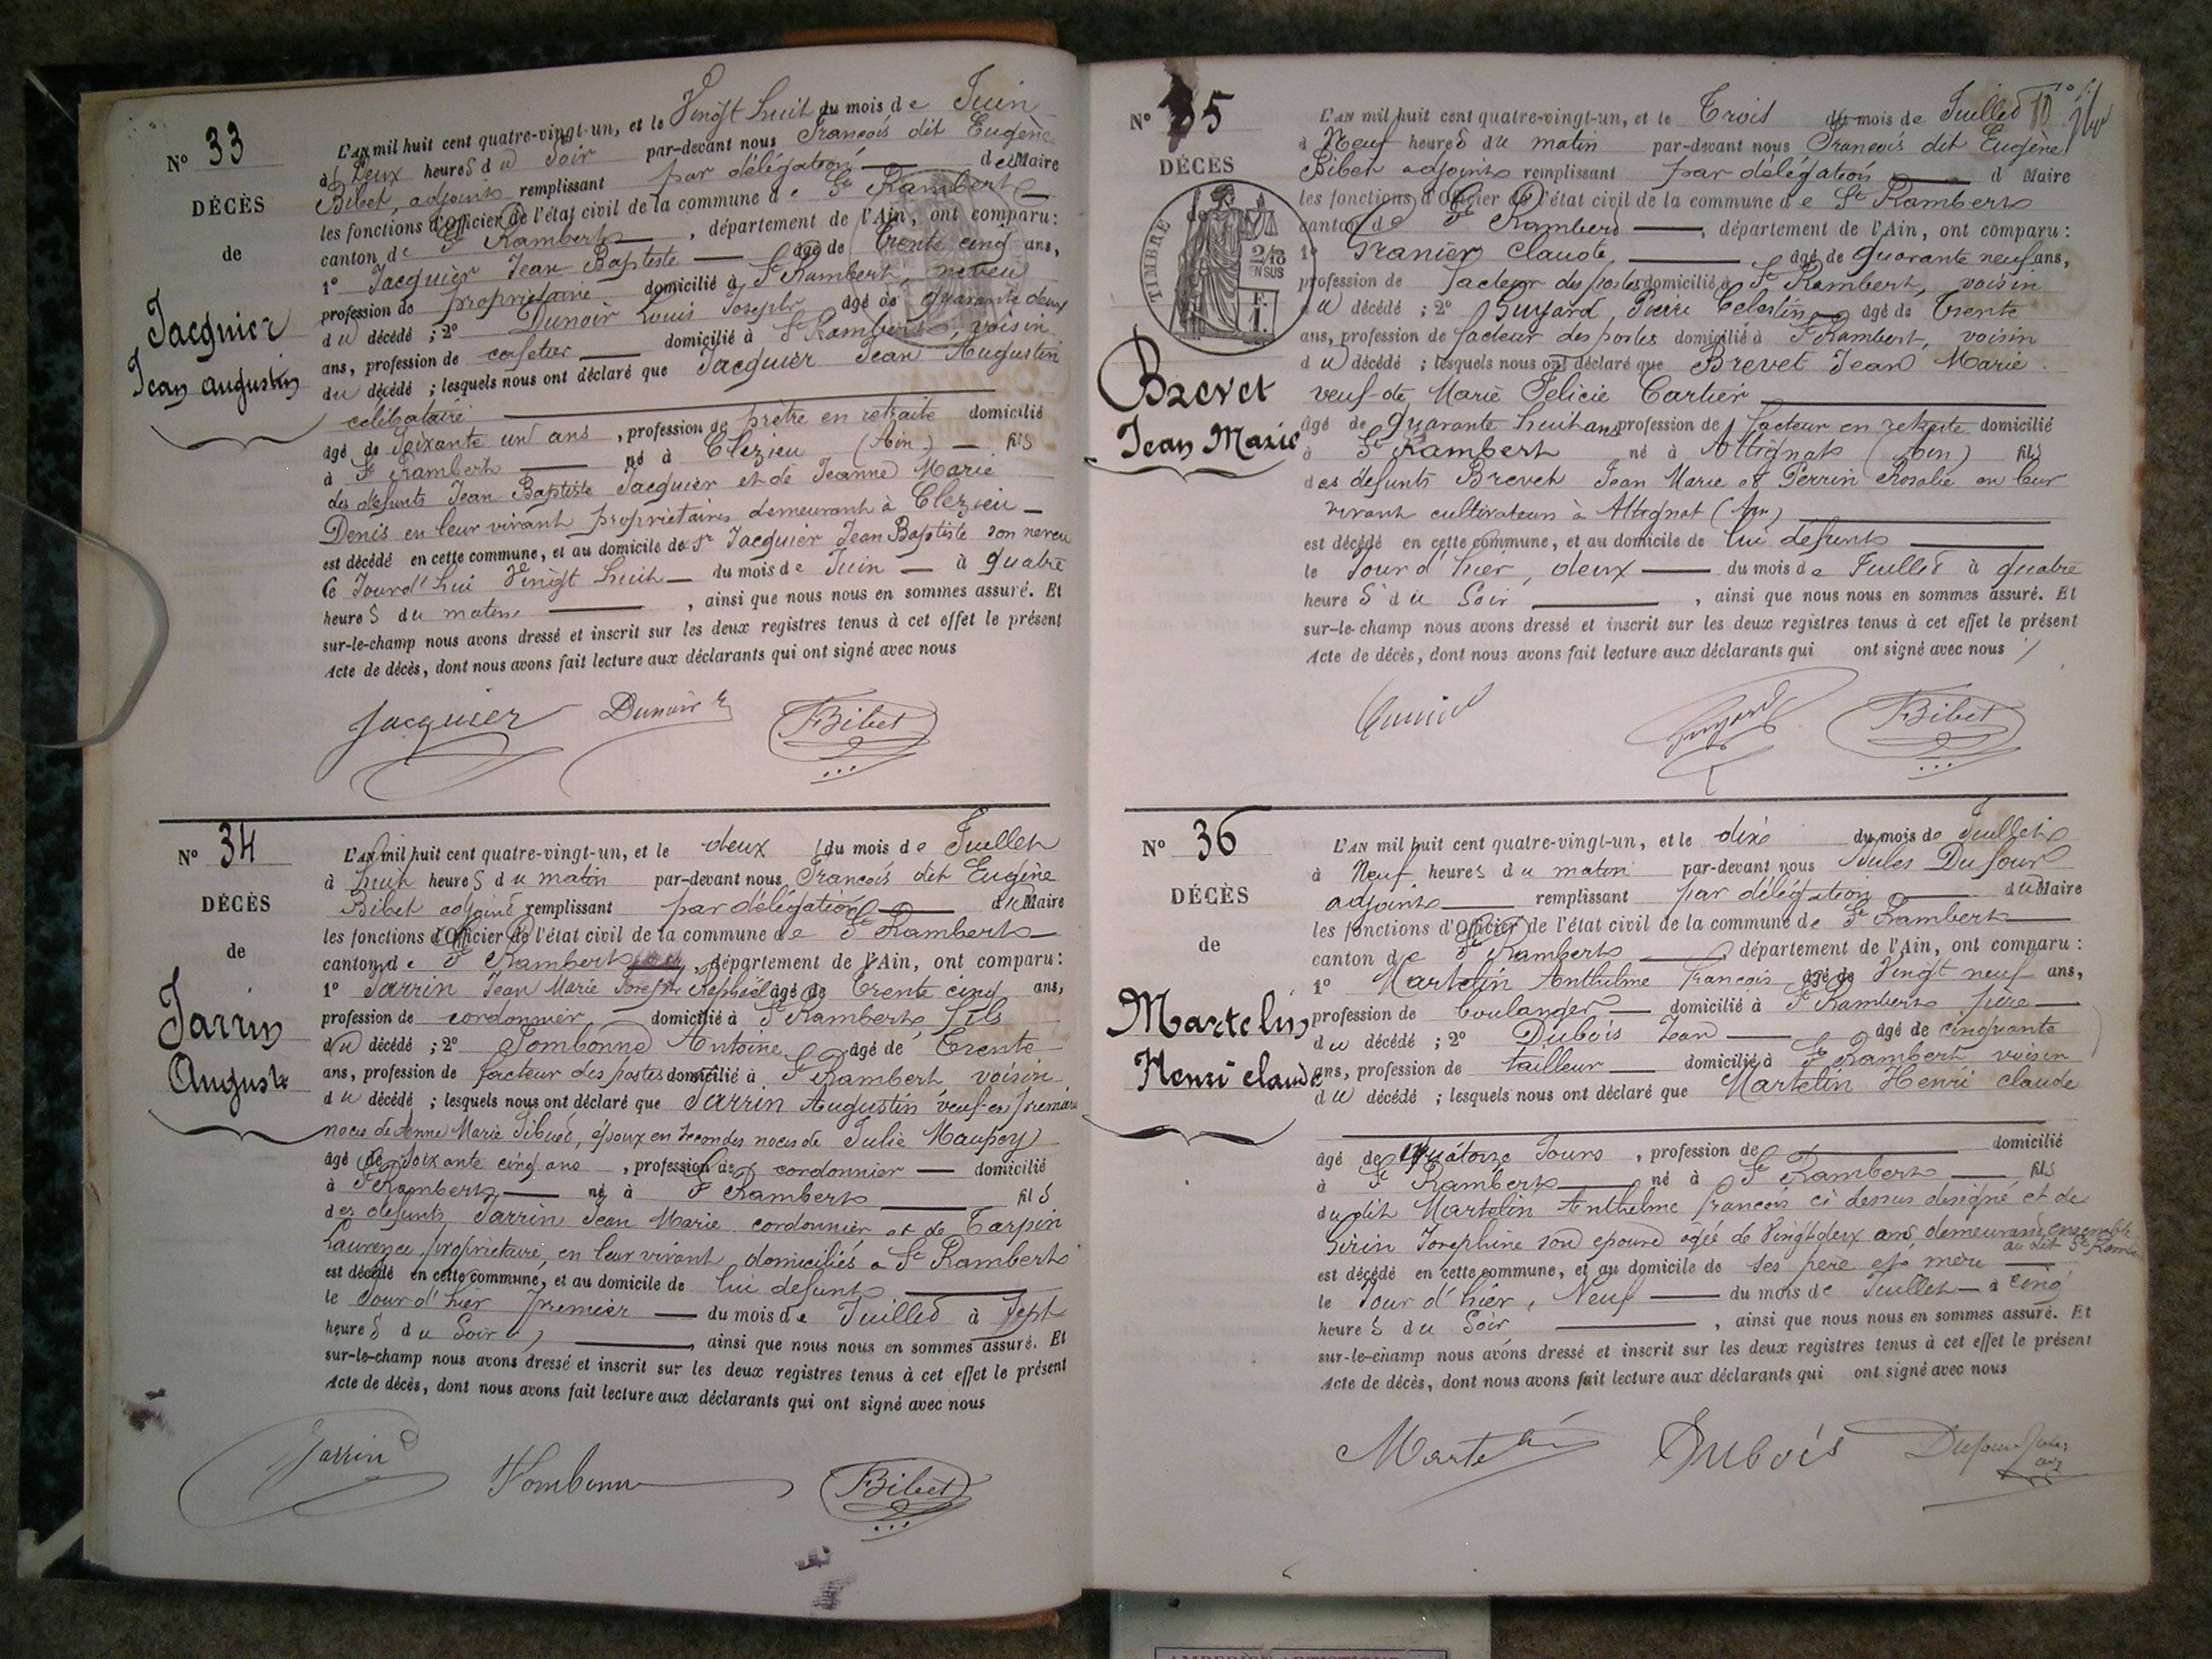 N° 33
DÉCÈS
de
Jacquier
Jean Augustin
L'AN mil huit cent quatre-vingt-un, et le Vingt huit du mois de Juin
à Deux heures du Soir par-devant nous François dit Eugène
Bibet, adjoint remplissant par délégation du Maire
les fonctions d'Officier de l'état civil de la commune de St Rambert
canton de St Rambert, département de l'Ain, ont comparu :
1° Jacquier Jean Baptiste âgé de trente cinq ans,
profession de propriétaire domicilié à St Rambert, neveu
du décédé ; 2° Dunoir Louis Joseph âgé de quarante deux
ans, profession de cafetier domicilié à St Rambert, voisin
du décédé ; lesquels nous ont déclaré que Jacquier Jean Augustin
célibataire
âgé de Soixante un ans, profession de prêtre en retraite domicilié
à St Rambert né à Clezieu (Ain) fils
des défunts Jean Baptiste Jacquier et de Jeanne Marie
Denis en leur vivant propriétaires demeurant à Clezieu
est décédé en cette commune, et au domicile de Sr Jacquier Jean Baptiste son neveu
le Jourd'hui Vingt huit du mois de Juin à quatre
heures du matin, ainsi que nous nous en sommes assuré. Et
sur-le-champ nous avons dressé et inscrit sur les deux registres tenus à cet effet le présent
Acte de décès, dont nous avons fait lecture aux déclarants qui ont signé avec nous
Jacquier Dunoir Bibet
N° 34
DÉCÈS
de
Jarrin
Auguste
L'AN mil huit cent quatre-vingt-un, et le deux du mois de Juillet
à huit heures du matin par-devant nous François dit Eugène
Bibet adjoint remplissant par délégation du Maire
les fonctions d'Officier de l'état civil de la commune de St Rambert
canton de St Rambert, département de l'Ain, ont comparu :
1° Jarrin Jean Marie Joseph Raphaël âgé de trente cinq ans,
profession de cordonnier domicilié à St Rambert, fils
du décédé ; 2° Tombonne Antoine âgé de Trente
ans, profession de facteur des postes domicilié à St Rambert voisin
du décédé ; lesquels nous ont déclaré que Jarrin Augustin veuf en
noces de Anne Marie, époux en secondes noces de Julie Maupoy
âgé de Soixante cinq ans, profession de cordonnier domicilié
à St Rambert né à St Rambert fils
des défunts Jarrin Jean Marie cordonnier et de Tarpin
Laurence propriétaire, en leur vivant domiciliés à St Rambert
est décédé en cette commune, et au domicile de lui défunt
le Jour d'hier premier du mois de Juillet à Sept
heures du Soir, ainsi que nous nous en sommes assuré. Et
sur-le-champ nous avons dressé et inscrit sur les deux registres tenus à cet effet le présent
Acte de décès, dont nous avons fait lecture aux déclarants qui ont signé avec nous
Jarrin Tombonne Bibet
N° 35
DÉCÈS
de
TIMBRE
2/10 EN SUS
Brevet
Jean Marie
L'AN mil huit cent quatre-vingt-un, et le Trois du mois de Juillet
à Neuf heures du matin par-devant nous François dit Eugène
Bibet adjoint remplissant par délégation d Maire
les fonctions d'Officier de l'état civil de la commune de St Rambert
canton de St Rambert, département de l'Ain, ont comparu :
1° Granier Claude âgé de quarante neuf ans,
profession de facteur des postes domicilié à St Rambert, voisin
du décédé ; 2° Guyard, Pierre Celestin âgé de Trente
ans, profession de facteur des postes domicilié à St Rambert, voisin
du décédé ; lesquels nous ont déclaré que Brevet Jean Marie
veuf de Marie Felicie Cartier
âgé de quarante huit ans profession de facteur en retraite domicilié
à St Rambert né à Attignat (Ain) fils
des défunts Brevet Jean Marie et Perrin Rosalie en leur
vivant cultivateurs à Attignat (Ain)
est décédé en cette commune, et au domicile de lui défunt
le Jour d'hier, deux du mois de Juillet à quatre
heures du Soir, ainsi que nous nous en sommes assuré. Et
sur-le-champ nous avons dressé et inscrit sur les deux registres tenus à cet effet le présent
Acte de décès, dont nous avons fait lecture aux déclarants qui ont signé avec nous
Guyard Bibet
N° 36
DÉCÈS
de
Martelin
Henri claude
L'AN mil huit cent quatre-vingt-un, et le dix du mois de Juillet
à Neuf heures du matin par-devant nous Jules Dufour
adjoint remplissant par délégation du Maire
les fonctions d'Officier de l'état civil de la commune de St Rambert
canton de St Rambert, département de l'Ain, ont comparu :
1° Martelin Anthelme François âgé de Vingt neuf ans,
profession de boulanger domicilié à St Rambert père
du décédé ; 2° Dubois Jean âgé de cinquante
ans, profession de tailleur domicilié à St Rambert voisin
du décédé ; lesquels nous ont déclaré que Martelin Henri claude
âgé de Quatorze Jours, profession de domicilié
à St Rambert né à St Rambert fils
du dit Martelin Anthelme françois ci dessus désigné et de
Josephine son epouse agée de Vingt deux ans, demeurant ensemble
au dit St Rambert
est décédé en cette commune, et au domicile de ses père et mère
le Jour d'hier, Neuf du mois de Juillet à cinq
heures du Soir, ainsi que nous nous en sommes assuré. Et
sur-le-champ nous avons dressé et inscrit sur les deux registres tenus à cet effet le présent
Acte de décès, dont nous avons fait lecture aux déclarants qui ont signé avec nous
Martelin Dubois Dufour Jules